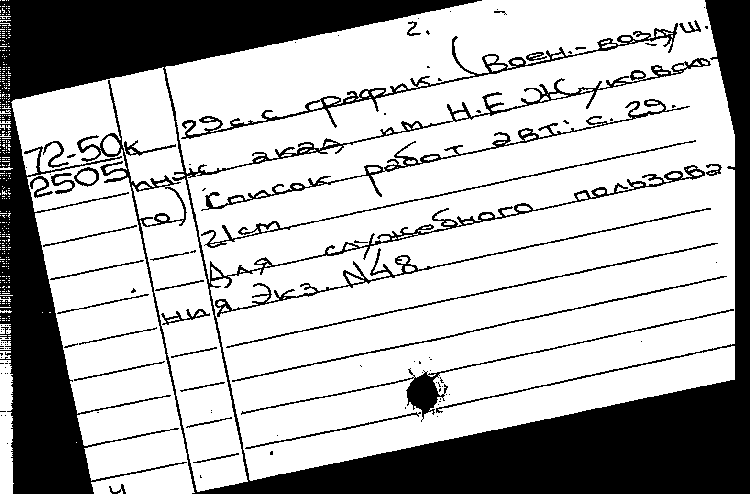 2.
29 с. с график. (Воен.-воздуш.
72-50к инж. акад. им. Н.Е.Жуковско-
2505 го) Список работ авт.: с. 29.
21 см
Для служебного пользова-
ния Экз. N48.